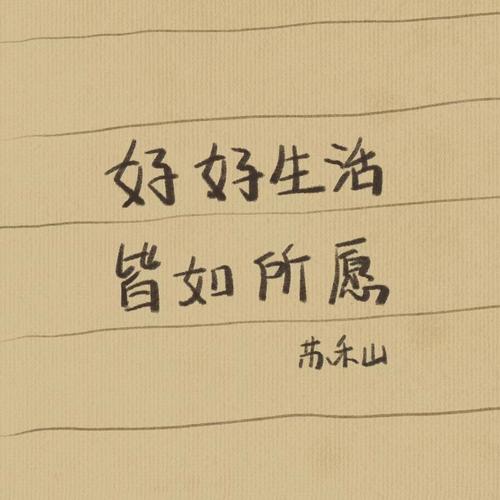 好好生活
皆如所愿
苏禾山